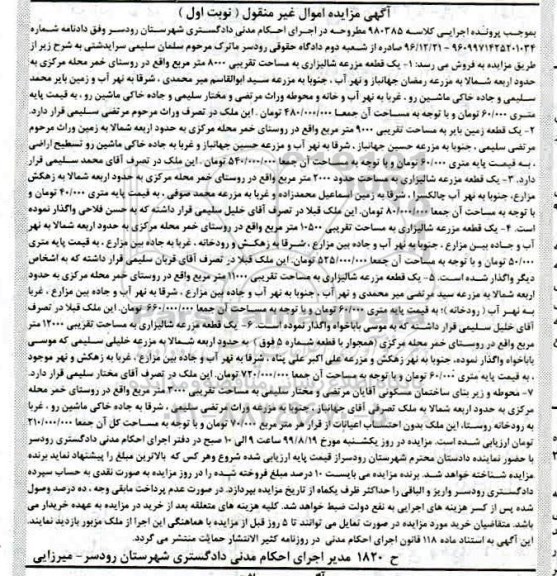 آگهی مزایده اموال غیر منقول ( نوبت اول )
بموجب پرونده اجرایی کلاسه ۹۸۰۳۸۵ مطروحه در اجرای احکام مدنی دادگستری شهرستان رودسر وفق دادنامه شماره
۹۶۰۹۹۷۱۴۲۵۲۰۱۰۳۴ - ۹۶/۱۲/۲۱ صادره از شعبه دوم دادگاه حقوقی رودسر ماترک مرحوم سلمان سلیمی سرایدشتی به شرح زیر از
طریق مزایده به فروش می رسد: ۱- یک قطعه مزرعه شالیزاری به مساحت تقریبی ۸۰۰۰ متر مربع واقع در روستای خمر محله مرکزی به
حدود اربعه شمالا به مزرعه رمضان جهانباز و نهر آب . جنوبا به مزرعه سید ابوالقاسم میر محمدی . شرقا به نهر آب و زمین بایر محمد
سلیمی و جاده خاکی ماشین رو . غربا به نهر آب و خانه و محوطه وراث مرتضی و مختار سلیمی و جاده خاکی ماشین رو ، به قیمت پایه
متری ۶۰/۰۰۰ تومان و با توجه به مساحت آن جمعا ۴۸۰/۰۰۰/۰۰۰ تومان . این ملک در تصرف وراث مرحوم مرتضی سلیمی قرار دارد.
۲- یک قطعه زمین بایر به مساحت تقریبی ۹۰۰۰ متر مربع واقع در روستای خمر محله مرکزی به حدود اربعه شمالا به زمین وراث مرحوم
مرتضی سلیمی ، جنوبا به مزرعه حسین جهانباز . شرقا به نهر آب و مزرعه حسین جهانباز و غربا به جاده خاکی ماشین رو تسطیح اراضی
. به قیمت پایه متری ۶۰/۰۰۰ تومان و با توجه به مساحت آن جمعا ۵۴۰/۰۰۰/۰۰۰ تومان . این ملک در تصرف آقای محمد سلیمی قرار
دارد. ۳- یک قطعه مزرعه شالیزاری به مساحت حدود ۲۰۰۰ متر مربع واقع در روستای خمر محله مرکزی به حدود اربعه شمالا به زهکش
مزارع، جنوبا به نهر آب چالکسرا . شرقا به زمین اسماعیل محمدزاده و غربا به مزرعه محمد صوفی . به قیمت پایه متری ۴۰/۰۰۰ تومان و
با توجه به مساحت آن جمعا ۸۰/۰۰۰/۰۰۰ تومان. این ملک قبلا در تصرف آقای خلیل سلیمی قرار داشته که به حسن فلاحی واگذار نموده
است. ۴- یک قطعه مزرعه شالیزاری به مساحت تقریبی ۱۰۵۰۰ متر مربع واقع در روستای خمر محله مرکزی به حدود اربعه شمالا به نهر
آب و جاده بین مزارع . جنوبا به نهر آب و جاده بین مزارع . شرقا به زهکش و رودخانه . غربا به جاده بین مزارع . به قیمت پایه متری
۵۰/۰۰۰ تومان و با توجه به مساحت آن جمعا ۵۲۵/۰۰۰/۰۰۰ تومان. این ملک قبلا در تصرف آقای قربان سلیمی قرار داشته که به اشخاص
دیگر واگذار شده است. ۵- یک قطعه مزرعه شالیزاری به مساحت تقریبی ۱۱۰۰۰ متر مربع واقع در روستای خمر محله مرکزی به حدود
اربعه شمالا به مزرعه سید مرتضی میر محمدی و نهر آب . جنوبا به نهر آب و جاده بین مزارع . شرقا به نهر آب و جاده بین مزارع . غربا
به نهر آب ( رودخانه )؛ به قیمت پایه متری ۶۰/۰۰۰ تومان و با توجه به مساحت آن جمعا ۶۶۰/۰۰۰/۰۰۰ تومان. این ملک قبلا در تصرف
آقای خلیل سلیمی قرار داشته که به موسی باباخواه واگذار نموده است. ۶- یک قطعه مزرعه شالیزاری به مساحت تقریبی ۱۲۰۰۰ متر
مربع واقع در روستای خمر محله مرکزی (همجوار با قطعه شماره ۵ فوق ) به حدود اربعه شمالا به مزرعه خلیلی سلیمی که موسی
باباخواه واگذار نموده، جنوبا به نهر زهکش و مزرعه علی اکبر علی پناه . شرقا به نهر آب و جاده بین مزارع. غربا به زهکش و نهر موجود
. به قیمت پایه متری ۶۰/۰۰۰ تومان و با توجه به مساحت آن جمعا ۷۲۰/۰۰۰/۰۰۰ تومان. این ملک در تصرف آقای مختار سلیمی قرار دارد.
۷- محوطه و زیر بنای ساختمان مسکونی آقایان مرتضی و مختار سلیمی به مساحت تقریبی ۳۰۰۰ متر مربع واقع در روستای خمر محله
مرکزی به حدود اربعه شمالا به ملک تصرفی آقای جهانباز . جنوبا به مزرعه وراث مرتضی سلیمی . شرقا به جاده خاکی ماشین رو . غربا
به رودخانه روستا، این ملک بدون احتساب اعیانات از قرار هر متر مربع ۷۰/۰۰۰ تومان و با توجه به مساحت کل آن جمعا ۲۱۰/۰۰۰/۰۰۰
تومان ارزیابی شده است. مزایده در روز یکشنبه مورخ ۹۹/۸/۱۹ ساعت ۹ الی ۱۰ صبح در دفتر اجرای احکام مدنی دادگستری رودسر
با حضور نماینده دادستان محترم شهرستان رودسراز قیمت پایه ارزیابی شده شروع وهر کس که بالاترین مبلغ را پیشنهاد نماید برنده
مزایده شناخته خواهد شد. برنده مزایده می بایست ۱۰ درصد مبلغ فروخته شده را در روز مزایده به صورت نقدی به حساب سپرده
دادگستری رودسر واریز و الباقی را حداکثر ظرف یکماه از تاریخ مزایده بپردازد. در صورت عدم پرداخت مابقی وجه ، ده درصد وصول
شده پس از کسر هزینه های اجرایی به نفع دولت ضبط خواهد شد. کلیه هزینه های متعلقه بعد از خرید در مزایده به عهده خریدار می
باشد. متقاضیان خرید مورد مزایده در صورت تمایل می توانند تا ۵ روز قبل از مزایده با هماهنگی این اجرا از ملک مزبور بازدید نمایند.
این آگهی به استناد ماده ۱۱۸ قانون اجرای احکام مدنی ، در روزنامه کثیر الانتشار حمایت منتشر می گردد.
ح ۱۸۲۰ مدیر اجرای احکام مدنی دادگستری شهرستان رودسر- میرزایی